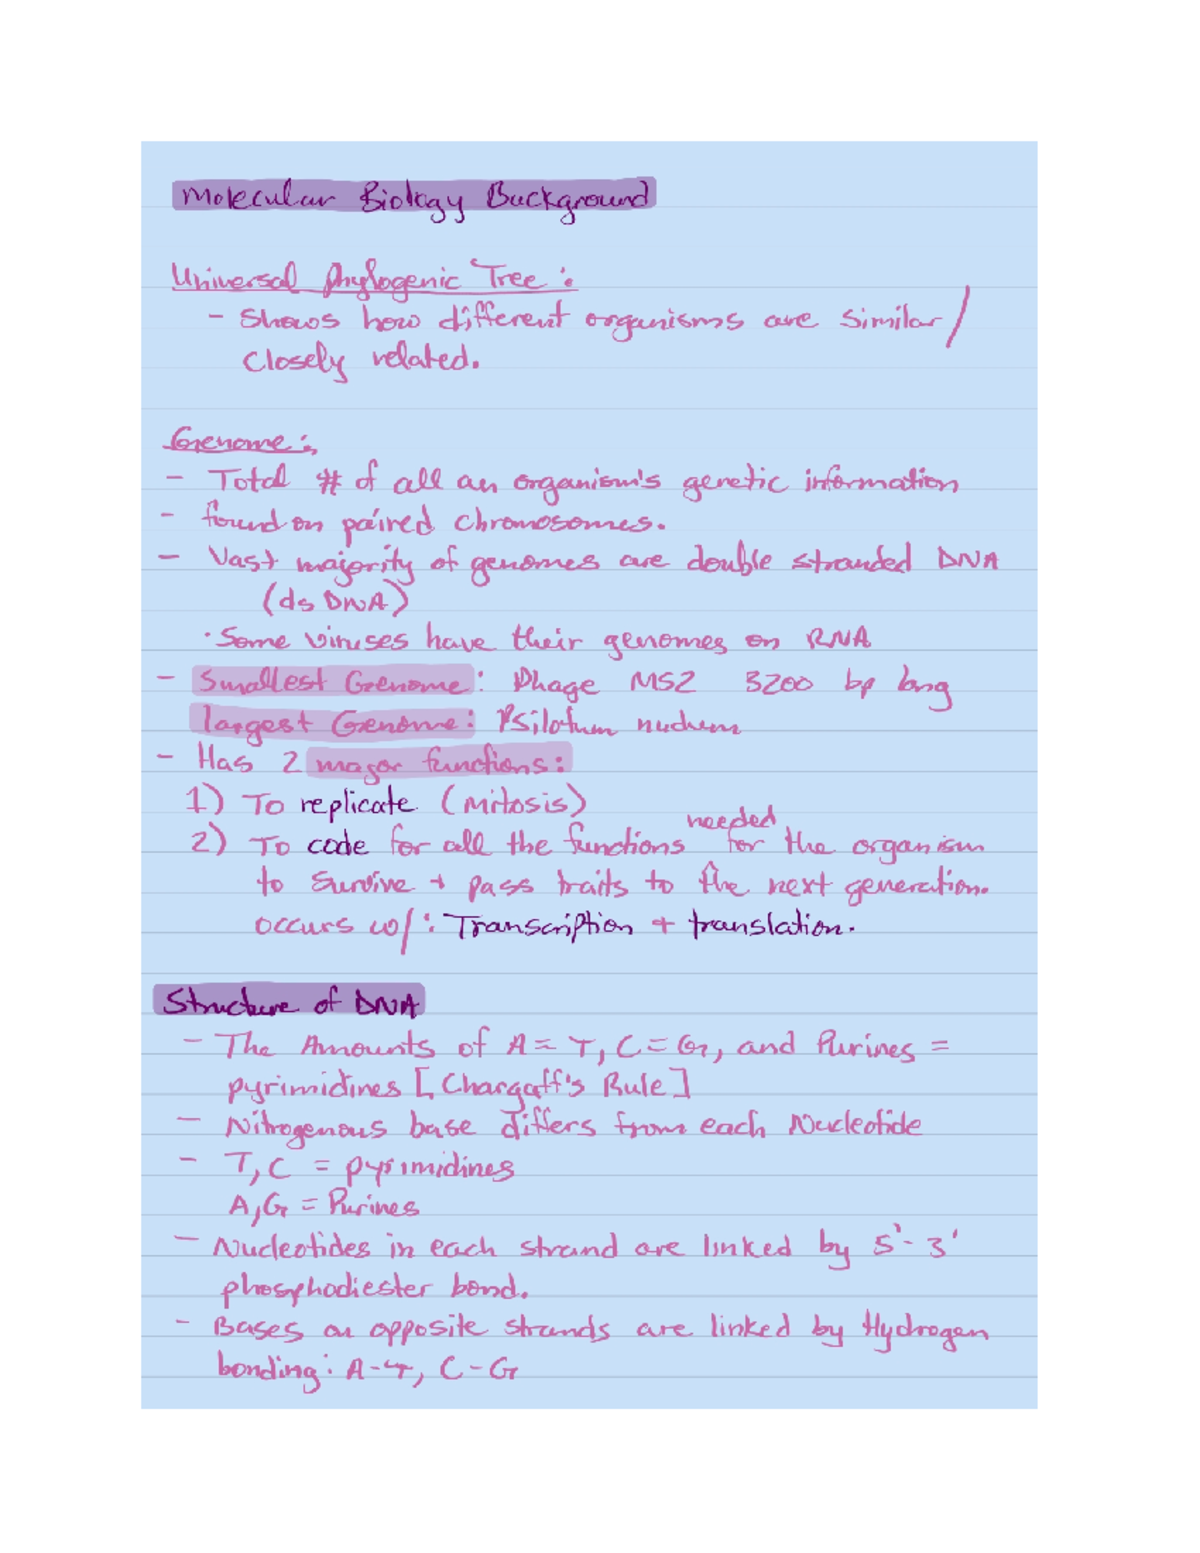 Molecular Biology Background
Universal phylogenic Tree:
- Shows how different organisms are similar/
closely related.
Genome:
- Total # of all an organism's genetic information
- found on paired chromosomes.
- Vast majority of genomes are double stranded DNA
(ds DNA)
· Some viruses have their genomes on RNA
- Smallest Genome: Phage MS2 3200 bp long
largest Genome: Psilotum nudum
- Has 2 major functions:
1) To replicate (mitosis)
needed
2) To code for all the functions for the organism
to survive + pass traits to the next generation.
occurs w/: Transcription + translation.
Structure of DNA
- The Amounts of A = T, C = G, and Purines =
pyrimidines [Chargaff's Rule]
- Nitrogenous base differs from each Nucleotide
- T, C = pyrimidines
A, G = Purines
- Nucleotides in each strand are linked by 5'- 3'
phosphodiester bond.
- Bases on opposite strands are linked by Hydrogen
bonding: A-T, C-G